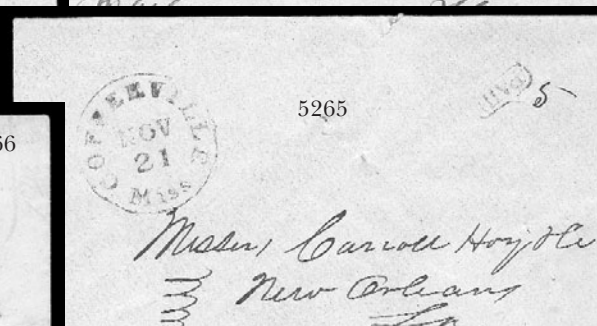 COFFEEVILLE
NOV
21
Miss
5265
PAID
5
56
Messrs Carroll Hoy & Co
New Orleans
La